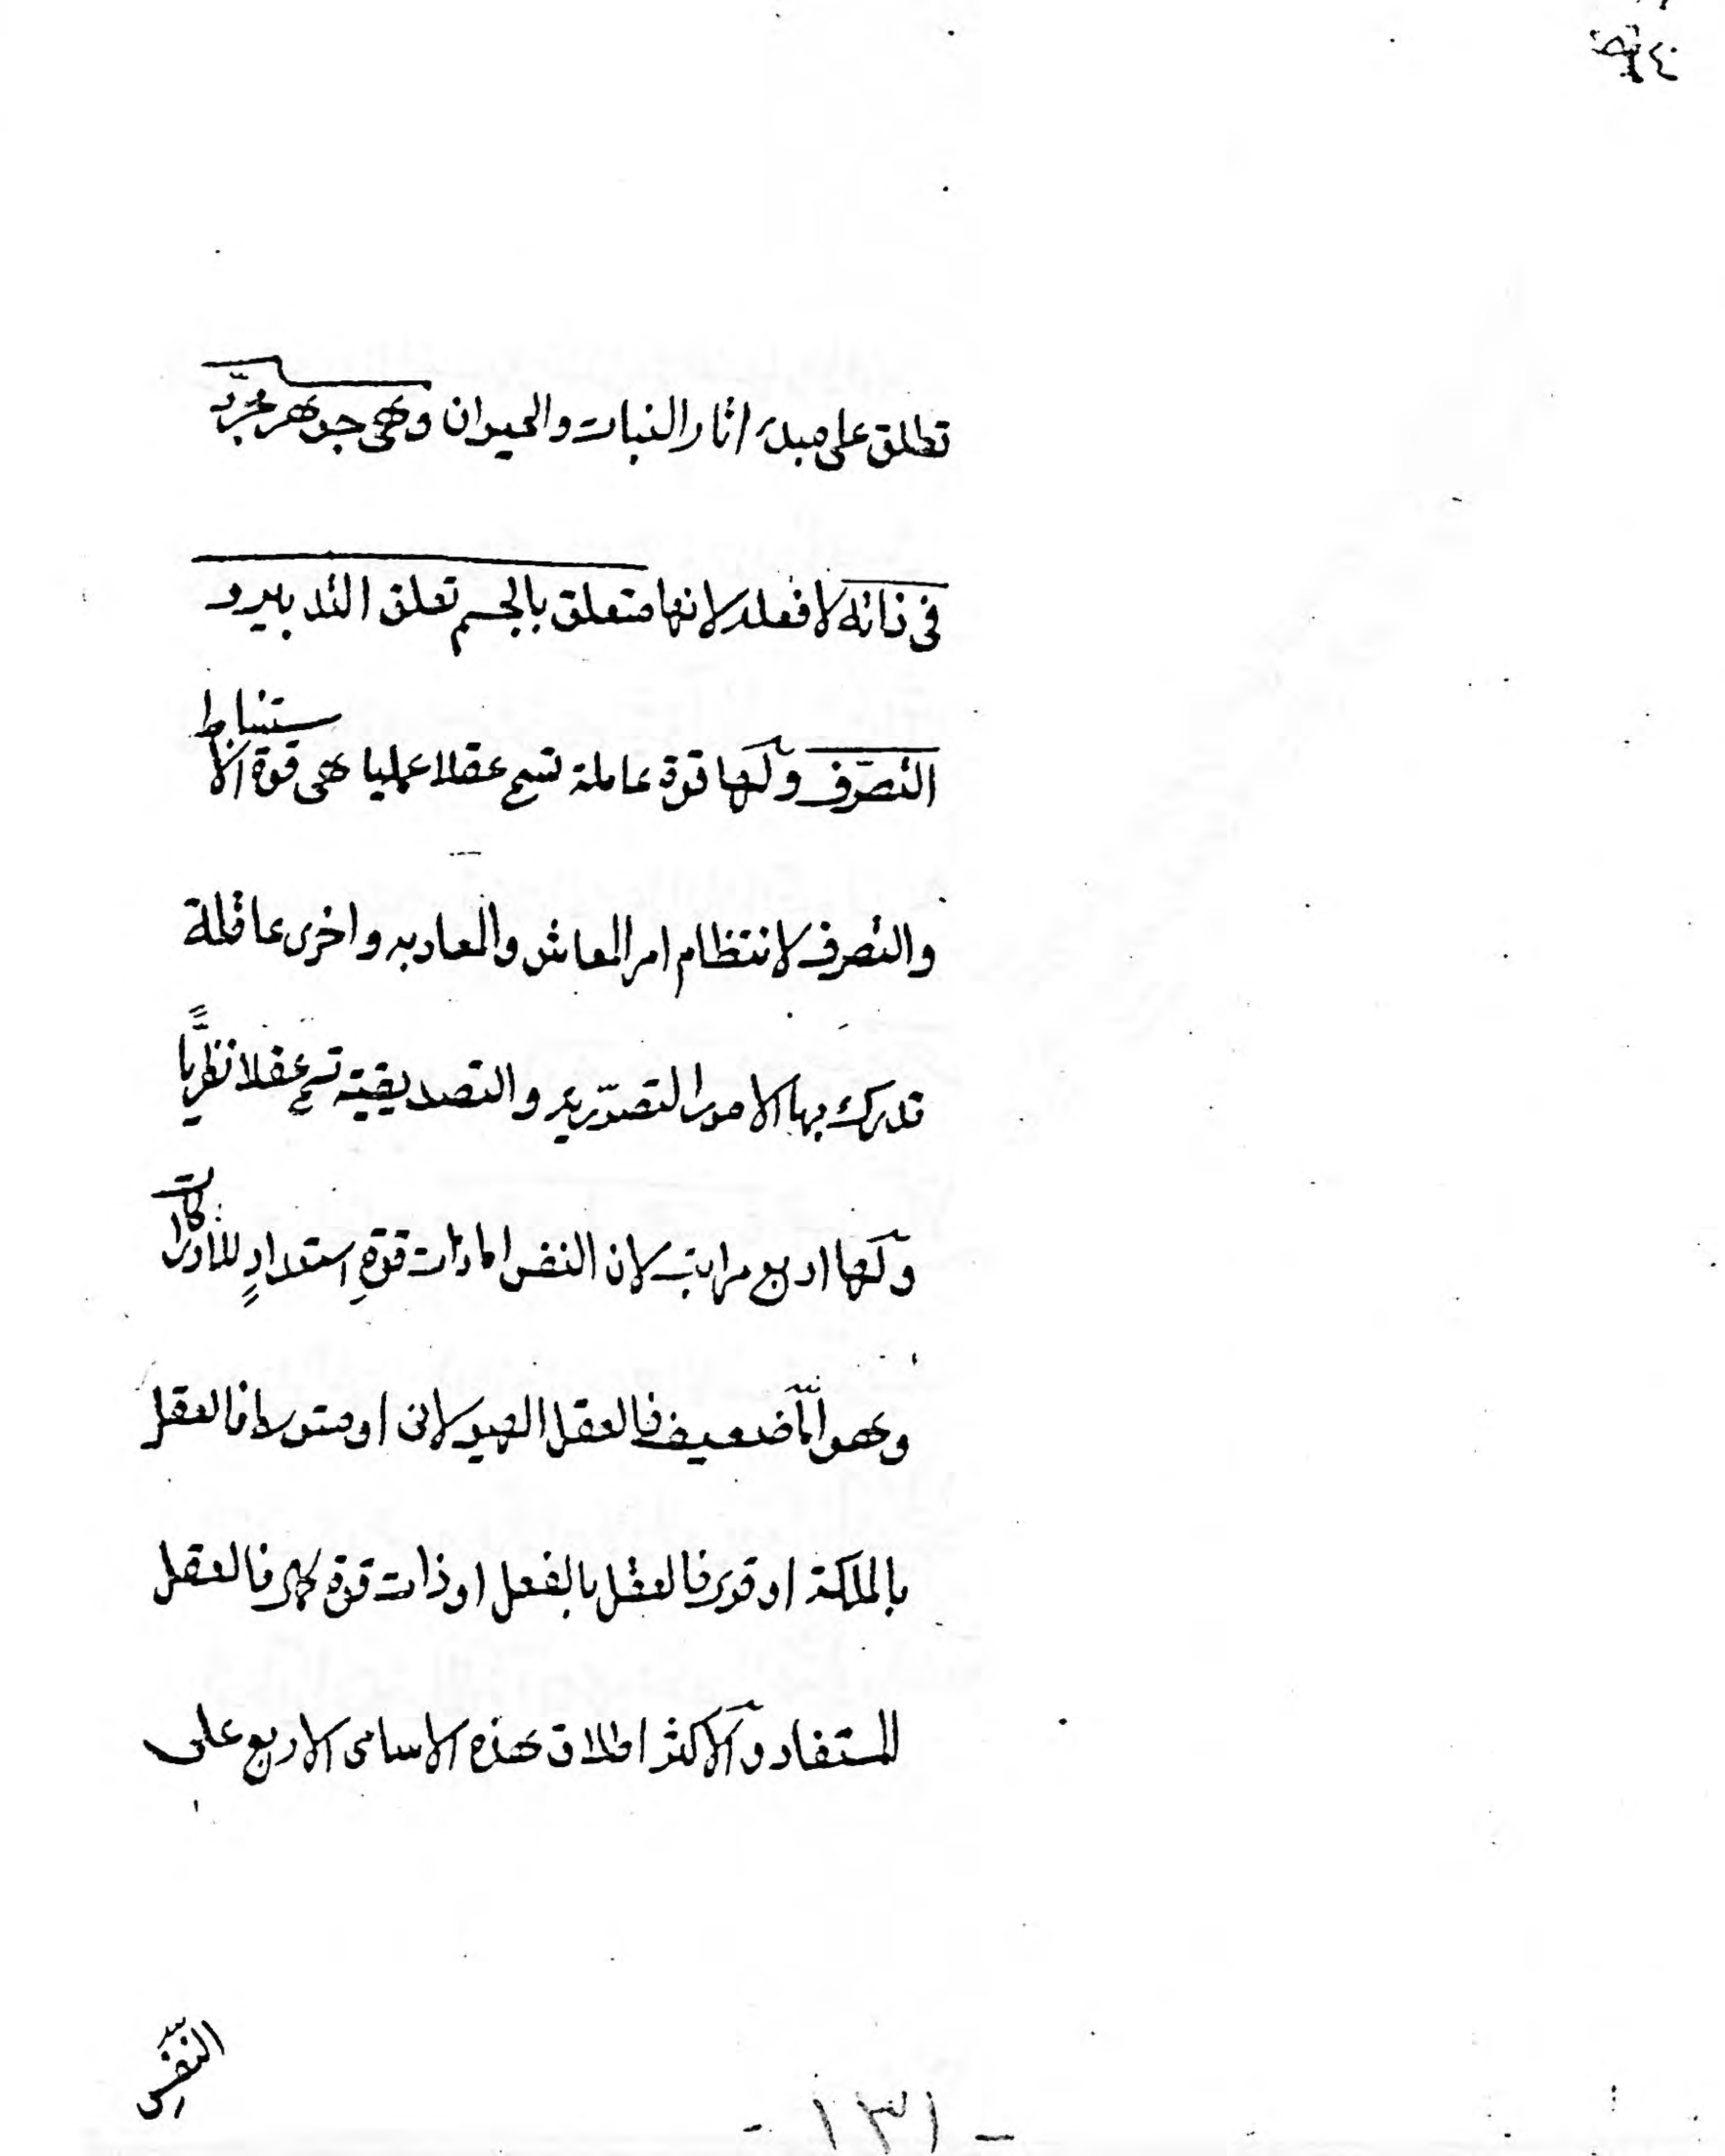 تطلق على مبدء اثار النبات والحيوان وهى جوهر مجرّد
فى ذاته لا فعله لانها متعلق بالجسم تعلق التدبير و
التصرّف ولها قوة عاملة تسمى عقلا عمليا هى قوة الاستنباط
والتصرف لانتظام امر المعاش والمعاد به واخرى عاقلة
تدرك بها الامور التصوّريه والتصديقية تسمى عقلا نظريًّا
ولها اربع مراتب لان النفس اما ذات قوةِ استعدادٍ للادراكات
وهو امّا ضعيف فالعقل الهيولانى او متوسط فالعقل
بالملكة او قوى فالعقل بالفعل او ذات قوة كمال فالعقل
المستفاد والاكثر اطلاق هذه الاسامى الاربع على
النفس
- ١٣١ -